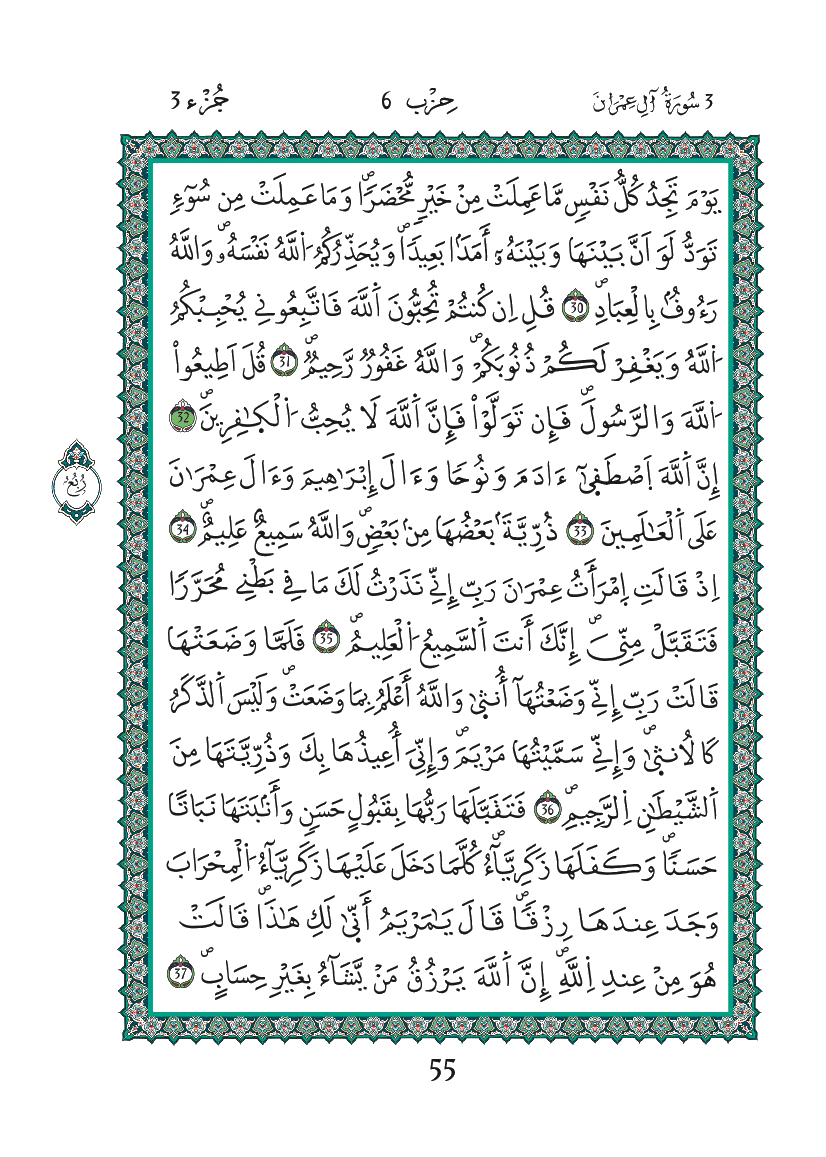 3 سُورَةُ آلِ عِمْرَانَ حِزْب 6 جُزْء 3
يَوْمَ تَجِدُ كُلُّ نَفْسٖ مَّا عَمِلَتْ مِنْ خَيْرٖ مُّحْضَراٗۖ وَمَا عَمِلَتْ مِن سُوٓءٖ
تَوَدُّ لَوَ اَنَّ بَيْنَهَا وَبَيْنَهُۥٓ أَمَدَاۢ بَعِيداٗۖ وَيُحَذِّرُكُمُ اُ۬للَّهُ نَفْسَهُۥۖ وَاللَّهُ
رَءُوفُۢ بِالْعِبَادِۖ 30 قُلِ اِن كُنتُمْ تُحِبُّونَ اَ۬للَّهَ فَاتَّبِعُونِے يُحْبِبْكُمُ
اُ۬للَّهُ وَيَغْفِرْ لَكُمْ ذُنُوبَكُمْۖ وَاللَّهُ غَفُورٞ رَّحِيمٞۖ 31 قُلَ اَطِيعُواْ
اُ۬للَّهَ وَالرَّسُولَۖ فَإِن تَوَلَّوْاْ فَإِنَّ اَ۬للَّهَ لَا يُحِبُّ اُ۬لْكٰ۪فِرِينَۖ 32
إِنَّ اَ۬للَّهَ اَ۪صْطَف۪يٰٓ ءَادَمَ وَنُوحاٗ وَءَالَ إِبْرَٰهِيمَ وَءَالَ عِمْرَٰنَ
عَلَي اَ۬لْعَٰلَمِينَ 33 ذُرِّيَّةَۢ بَعْضُهَا مِنۢ بَعْضٖۖ وَاللَّهُ سَمِيعٌ عَلِيمٌۖ 34
اِذْ قَالَتِ اِ۪مْرَأَتُ عِمْرَٰنَ رَبِّ إِنِّے نَذَرْتُ لَكَ مَا فِے بَطْنِے مُحَرَّراٗ
فَتَقَبَّلْ مِنِّيَۖ إِنَّكَ أَنتَ اَ۬لسَّمِيعُ اُ۬لْعَلِيمُۖ 35 فَلَمَّا وَضَعَتْهَا
قَالَتْ رَبِّ إِنِّے وَضَعْتُهَآ أُنث۪يٰ وَاللَّهُ أَعْلَمُ بِمَا وَضَعَتْۖ وَلَيْسَ اَ۬لذَّكَرُ
كَالُانث۪يٰۖ وَإِنِّے سَمَّيْتُهَا مَرْيَمَۖ وَإِنِّيَ أُعِيذُهَا بِكَ وَذُرِّيَّتَهَا مِنَ
اَ۬لشَّيْطَٰنِ اِ۬لرَّجِيمِۖ 36 فَتَقَبَّلَهَا رَبُّهَا بِقَبُولٍ حَسَنٖ وَأَنۢبَتَهَا نَبَاتاً
حَسَناٗۖ وَكَفَلَهَا زَكَرِيَّآءُۖ كُلَّمَا دَخَلَ عَلَيْهَا زَكَرِيَّآءُ اُ۬لْمِحْرَابَ
وَجَدَ عِندَهَا رِزْقاٗۖ قَالَ يَٰمَرْيَمُ أَنّ۪يٰ لَكِ هَٰذَاۖ قَالَتْ
هُوَ مِنْ عِندِ اِ۬للَّهِۖ إِنَّ اَ۬للَّهَ يَرْزُقُ مَنْ يَّشَآءُ بِغَيْرِ حِسَابٍۖ 37
رُبُع
55